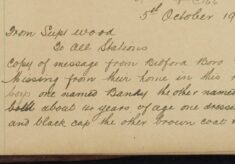 5th October 19
From Supt Wood
To All Stations
Copy of message from Bedford Boro
Missing from their home in this
boys one named Banky the other named
about 10 years of age one dressed
and black cap the other brown coat